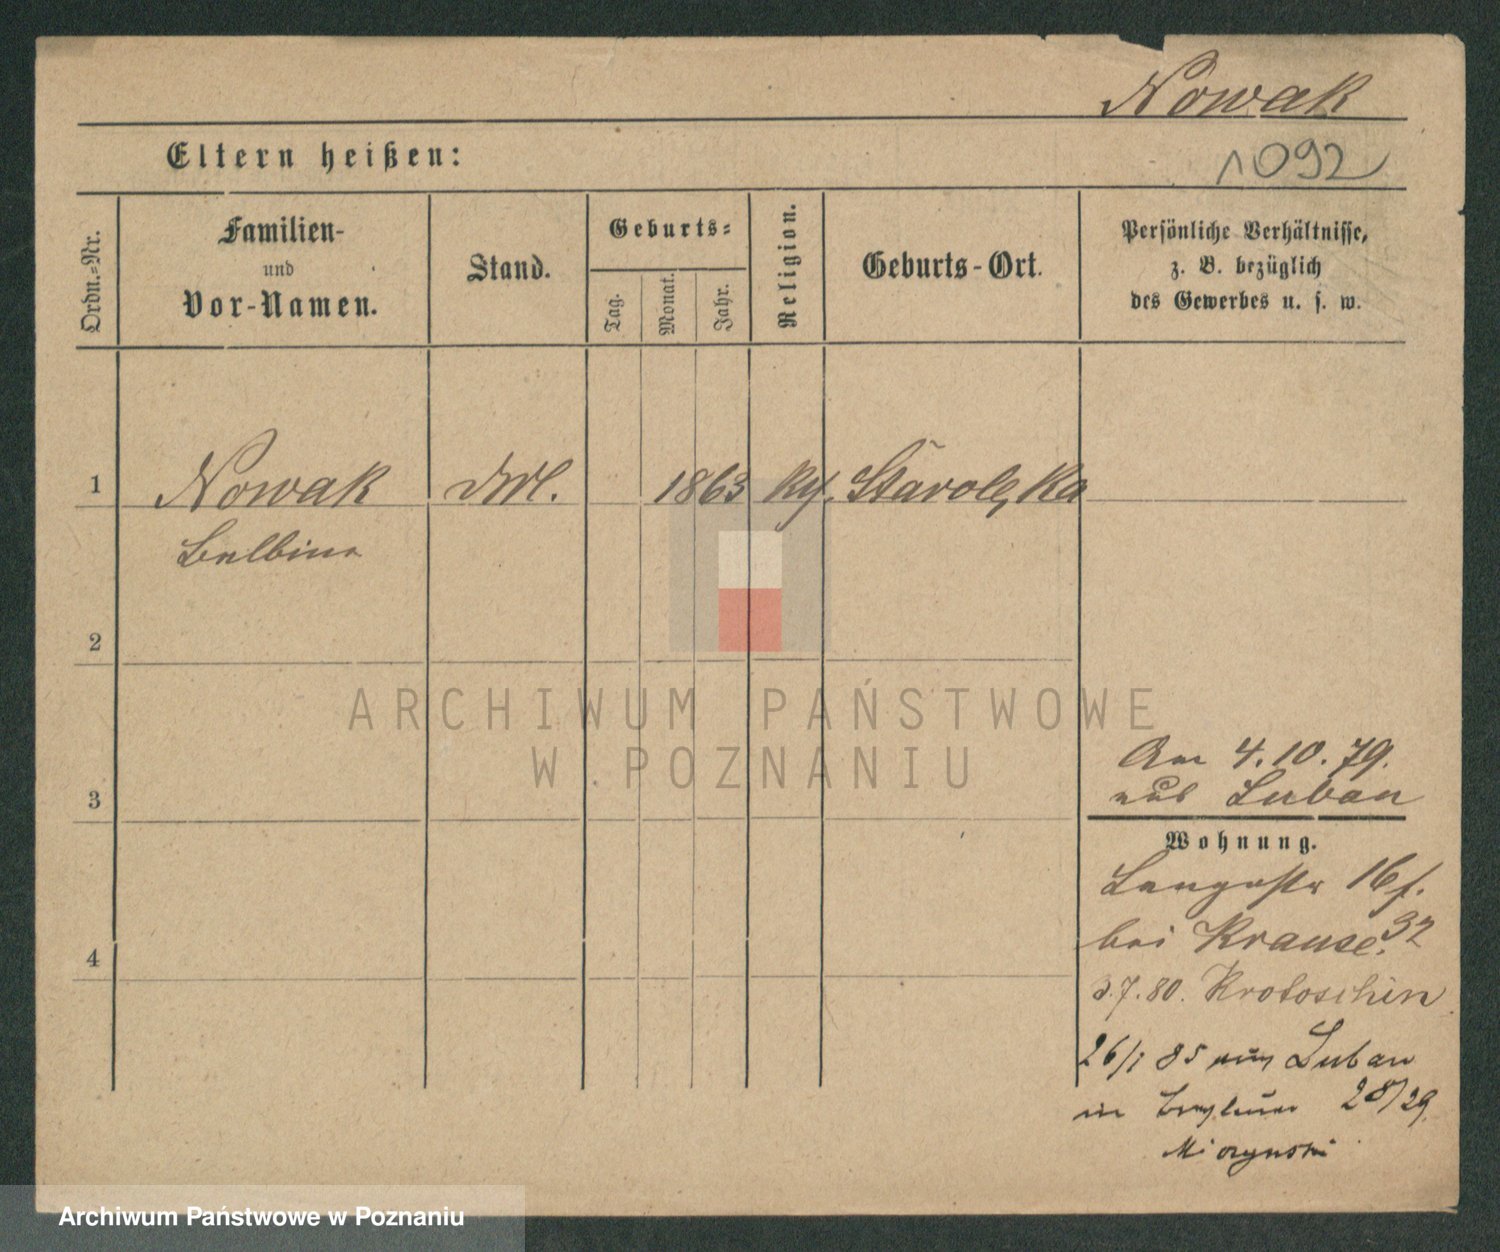 Nowak
Eltern heißen:
1092
Ordn.=Nr.
Familien-
und
Vor-Namen.
Stand.
Geburts=
Tag.
Monat.
Jahr.
Religion.
Geburts-Ort.
Persönliche Verhältnisse,
z. B. bezüglich
des Gewerbes u. s. w.
1 Nowak 1863 Starolęka
Balbina
2
ARCHIWUM PAŃSTWOWE
W POZNANIU
3
Am 4.10.79.
aus Luban
Wohnung.
Langestr 16
bei Krause. 32
4
3.7.80. Krotoschin
26/1 85 aus Luban
in 28/29
Archiwum Państwowe w Poznaniu